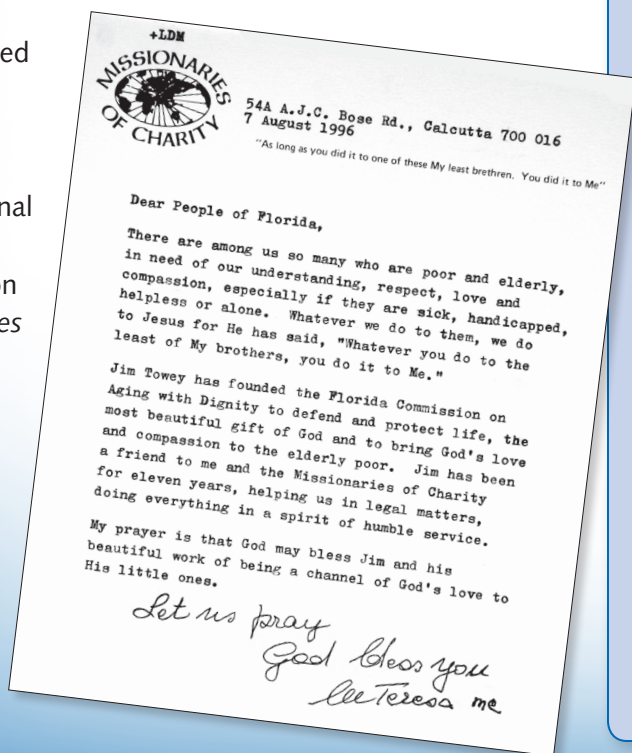 ed
nal
on
es
+LDM
MISSIONARIES
OF CHARITY
54A A.J.C. Bose Rd., Calcutta 700 016
7 August 1996
"As long as you did it to one of these My least brethren. You did it to Me"
Dear People of Florida,
There are among us so many who are poor and elderly,
in need of our understanding, respect, love and
compassion, especially if they are sick, handicapped,
helpless or alone. Whatever we do to them, we do
to Jesus for He has said, "Whatever you do to the
least of My brothers, you do it to Me."
Jim Towey has founded the Florida Commission on
Aging with Dignity to defend and protect life, the
most beautiful gift of God and to bring God's love
and compassion to the elderly poor. Jim has been
a friend to me and the Missionaries of Charity
for eleven years, helping us in legal matters,
doing everything in a spirit of humble service.
My prayer is that God may bless Jim and his
beautiful work of being a channel of God's love to
His little ones.
Let us pray
God bless you
Teresa mc